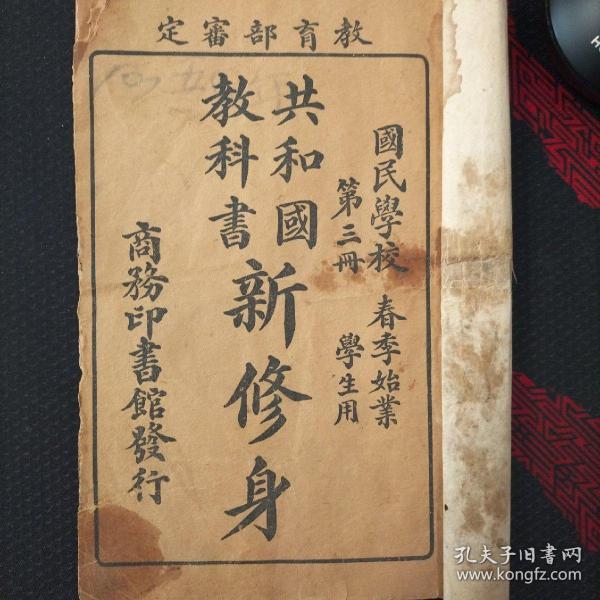 教育部審定
國民學校 春季始業
第三冊 學生用
共和國
教科書
新修身
商務印書館發行
孔夫子旧书网
www.kongfz.com